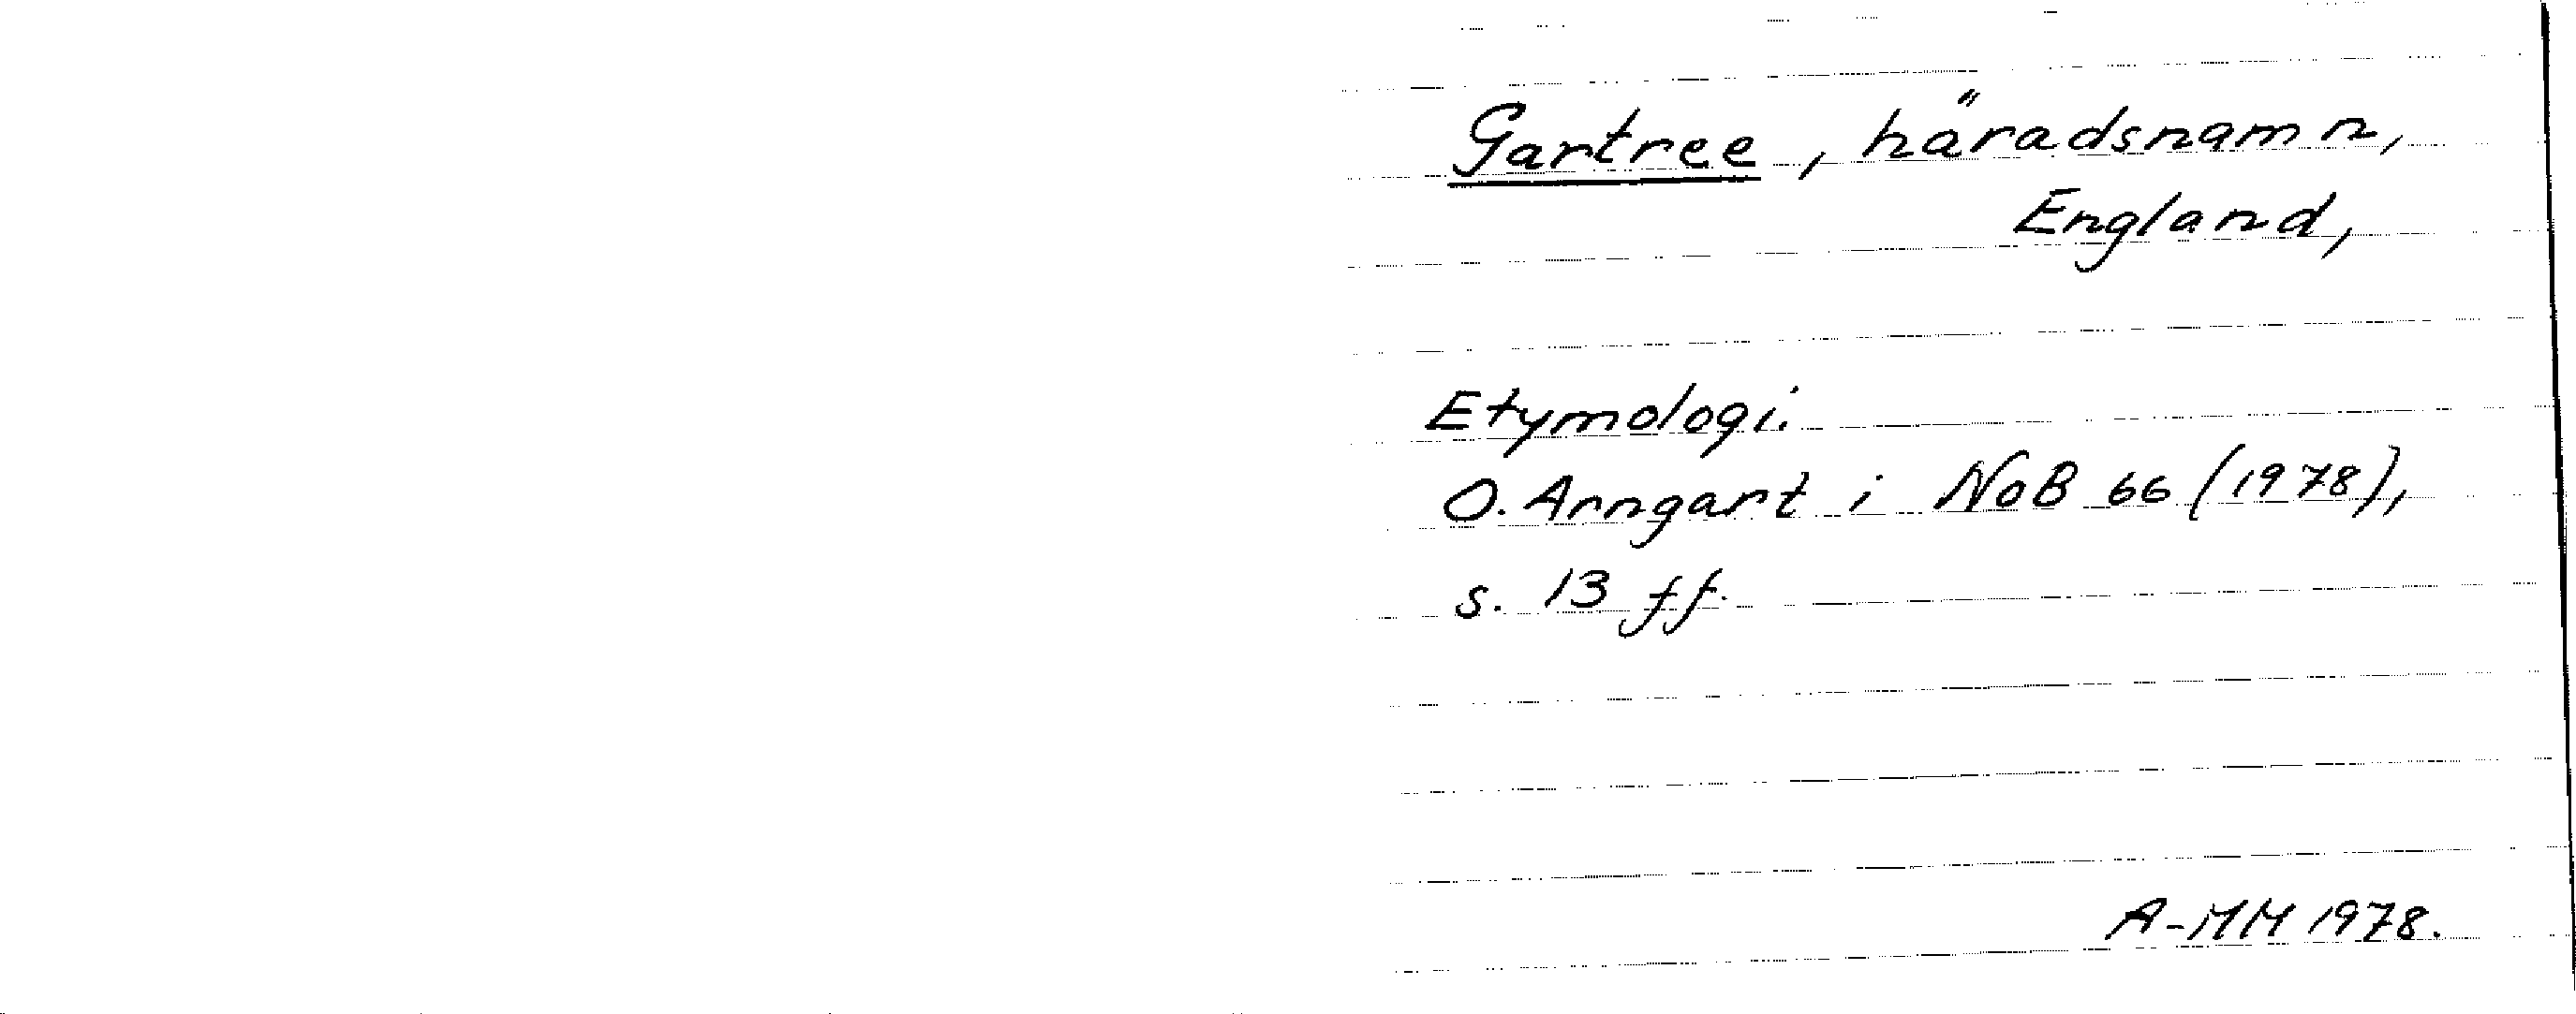 Gartree, häradsnamn,
England,
Etymologi.
O. Arngart i NoB 66 (1978),
s. 13 ff.
A-MM 1978.